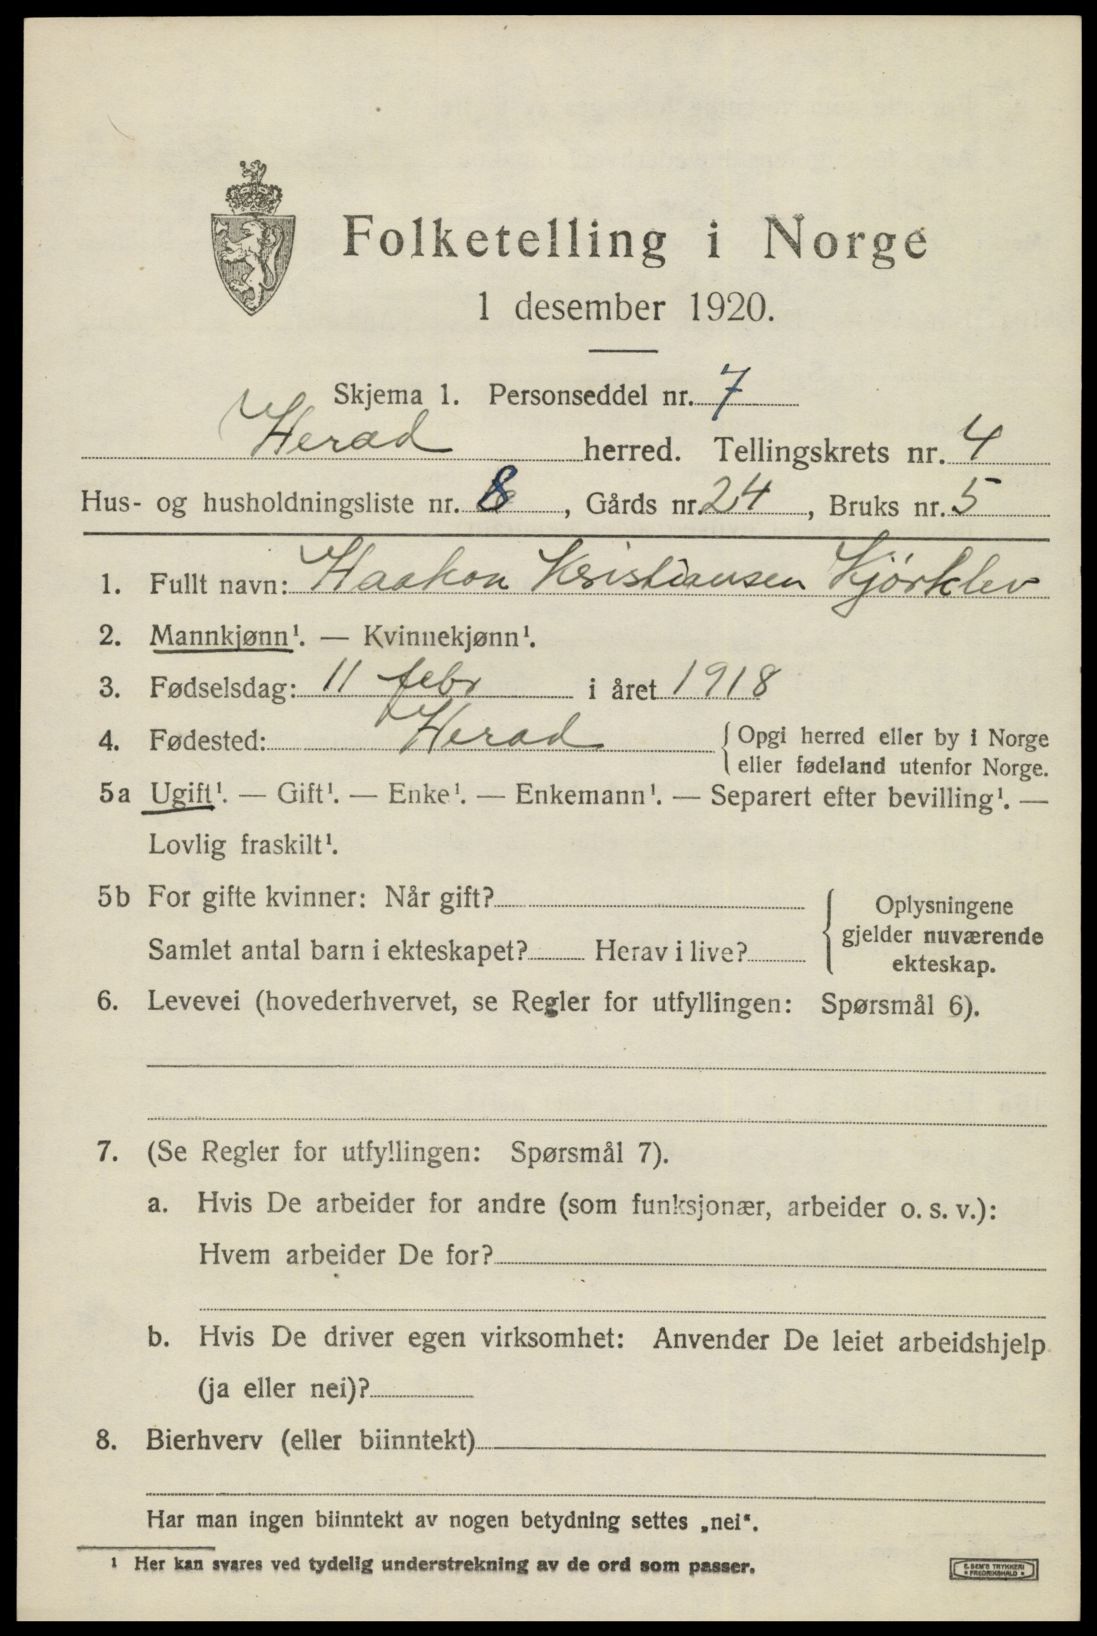 Folketelling i Norge
1 desember 1920.
Skjema 1. Personseddel nr. 7
Herad herred. Tellingskrets nr. 4
Hus- og husholdningsliste nr. 8, Gårds nr. 24, Bruks nr. 5
1. Fullt navn: Haakon Kristiansen Kjörklev
2. Mannkjønn¹. — Kvinnekjønn¹.
3. Fødselsdag: 11 febr i året 1918
4. Fødested: Herad {Opgi herred eller by i Norge
eller fødeland utenfor Norge.
5a Ugift¹. — Gift¹. — Enke¹. — Enkemann¹. — Separert efter bevilling¹. —
Lovlig fraskilt¹.
5b For gifte kvinner: Når gift?
Samlet antal barn i ekteskapet? Herav i live?
{Oplysningene
gjelder nuværende
ekteskap.
6. Levevei (hovederhvervet, se Regler for utfyllingen: Spørsmål 6).
7. (Se Regler for utfyllingen: Spørsmål 7).
a. Hvis De arbeider for andre (som funksjonær, arbeider o. s. v.):
Hvem arbeider De for?
b. Hvis De driver egen virksomhet: Anvender De leiet arbeidshjelp
(ja eller nei)?
8. Bierhverv (eller biinntekt)
Har man ingen biinntekt av nogen betydning settes „nei“.
¹ Her kan svares ved tydelig understrekning av de ord som passer.
E. SEM'S TRYKKERI
* FREDRIKSHALD *